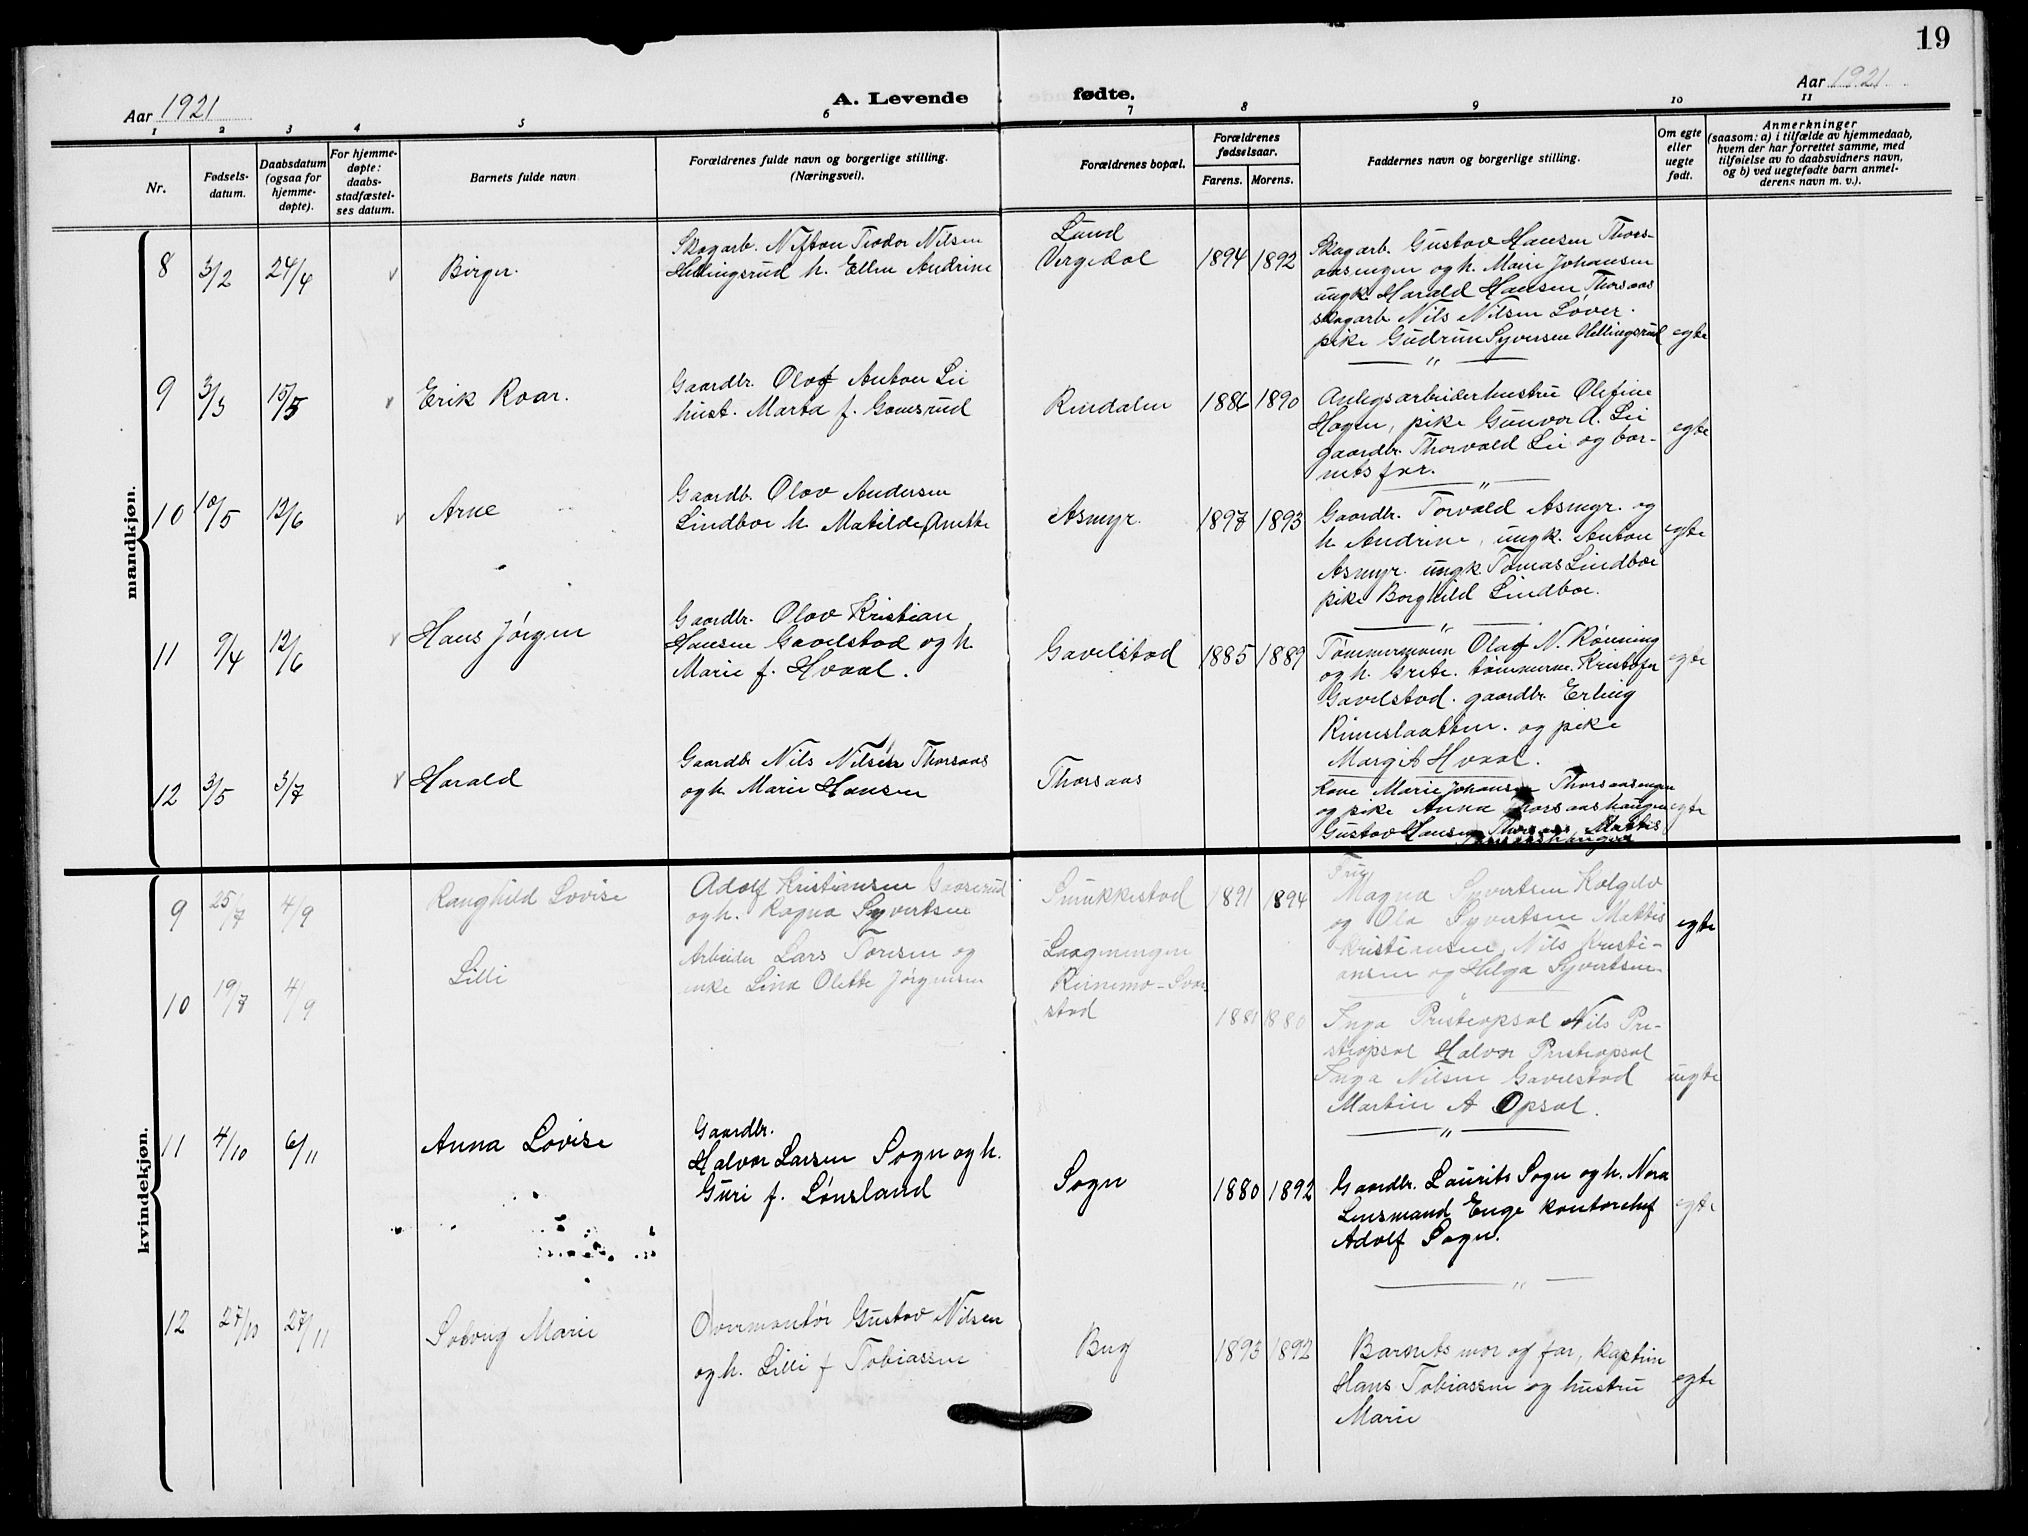 19
Aar 1921
A. Levende fødte.
Aar 1921
1 2 3 4 5 6 7 8 9 10 11
Nr.
Fødsels-
datum.
Daabsdatum
(ogsaa for
hjemme-
døpte).
For hjemme-
døpte:
daabs-
stadfæstel-
ses datum.
Barnets fulde navn
Forældrenes fulde navn og borgerlige stilling.
(Næringsvei).
Forældrenes bopæl.
Forældrenes
fødselsaar.
Farens. Morens.
Faddernes navn og stilling.
Om egte
eller
uegte
født.
Anmerkninger
(saasom: a) i tilfælde av hjemmedaab,
hvem der har forrettet samme, med
tilføielse av to daabsvidners navn,
og b) ved uegtefødte barn anmel-
derens navn m. v.).
mandkjøn.
8 3/2 24/4 v Birger.
Skogarb. Nifton Teodor Nilsen
Hellingsrud h. Ellen Andrine
Lund
Vergedal
1894 1892
Skogarb. Gustav Hansen Thors-
aasengen og h. Marie Johansen
ungk. Harald Hansen Thorsaas
skogarb. Nils Nilsen Løver.
pike Gudrun Syversen Hellingsrud egte
9 3/3 15/5 v Erik Roar.
Gaardbr. Olaf Anton Lie
hust. Marta f. Gomsrud
Rindalen
1886 1890
Anlegsarbeiderhustru Olefine
Hagen, pike Gunvor A. Lie
gaardbr. Thorvald Lie og bar-
nets far.
egte
10 10/5 12/6 v Arne
Gaardb. Olov Andersen
Lindboe h. Matilde Anette
Asmyr.
1897 1893
Gaardbr. Torvald Asmyr. og
h. Andrine, ungk. Anton
Asmyr. ungk. Tomas Lindboe
pike Borghild Lindboe.
egte
11 9/4 12/6 v Hans Jørgen
Gaardbr. Olov Kristian
Hansen Gavelstad og h.
Marie f. Hvaal.
Gavelstad
1885 1889
Tømmermann Olaf N. Rønning
og h. Grete. tømmerm. Kristofer
Gavelstad. gaardbr. Erling
Rimeslaatten. og pike
Margit Hvaal.
egte
12 3/5 3/7 v Harald
Gaardbr Nils Nilsen Thorsaas
og h. Marie Hansen
Thorsaas
Kone Marie Johansen Thorsaasengen
og pike Anna Thorsaashaugen
Gustav Hansen Thorsaas Mattis
Thorsaashaugen
egte
kvindekjøn.
9 25/7 4/9 Ranghild Lovise
Adolf Kristiansen Gaaserud
og h. Ragna Syvertsen
Smukkestad
1891 1894
Fru
Magna Syvertsen Kolgilv
og Ola Syvertsen Mattis
Kristiansen, Nils Kristi-
ansen og Helga Syvertsen
egte
10 19/7 4/9 Lilli
Arbeider Lars Toresen og
enke Lina Olette Jørgensen
Laagningen
Rinnemo - Svar-
stad
1881 1880
Inga Presteopsal Nils Pre-
steopsal Halvor Presteopsal
Inga Nilsen Gavelstad
Martin A Opsal.
uegte
11 4/10 6/11 Anna Lovise
Gaardbr.
Halvor Larsen Sogn og h.
Guri f. Lønsland
Sogn
1880 1892
Gaardbr. Laurits Sogn og h. Nora
Lensmand Enge kontorchef
Adolf Sogn.
egte
12 27/10 27/11 Solveig Marie
Overmontør Gustav Nilsen
og h. Lilli f Tobiassen
Berg
1893 1892
Barnets mor og far, kaptein
Hans Tobiassen og hustru
Marie
egte